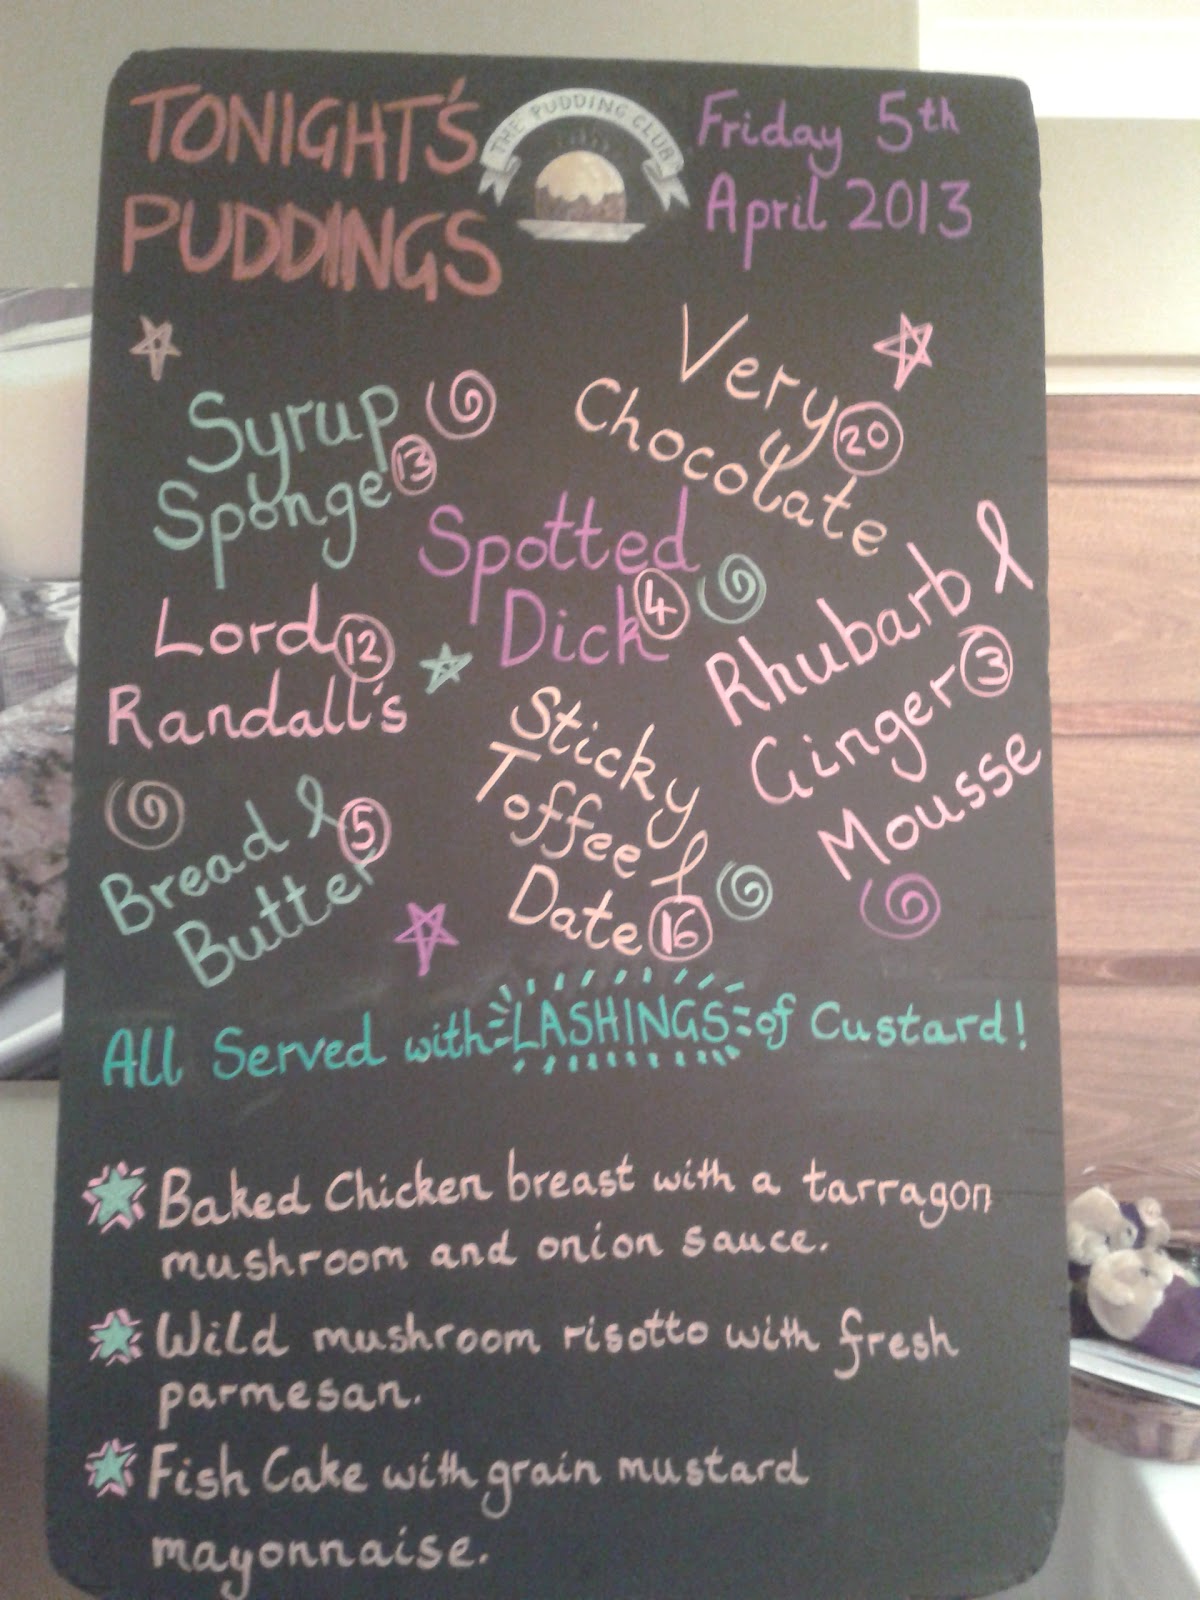 TONIGHT'S
PUDDINGS
THE PUDDING CLUB
Friday 5th
April 2013
Syrup
Sponge 13
Very 20
Chocolate
Spotted
Dick 4
Lord 12
Randall's
Rhubarb &
Ginger 3
Mousse
Sticky
Toffee &
Date 16
Bread & 5
Butter
All Served with LASHINGS of Custard!
Baked Chicken breast with a tarragon
mushroom and onion sauce.
Wild mushroom risotto with fresh
parmesan.
Fish Cake with grain mustard
mayonnaise.